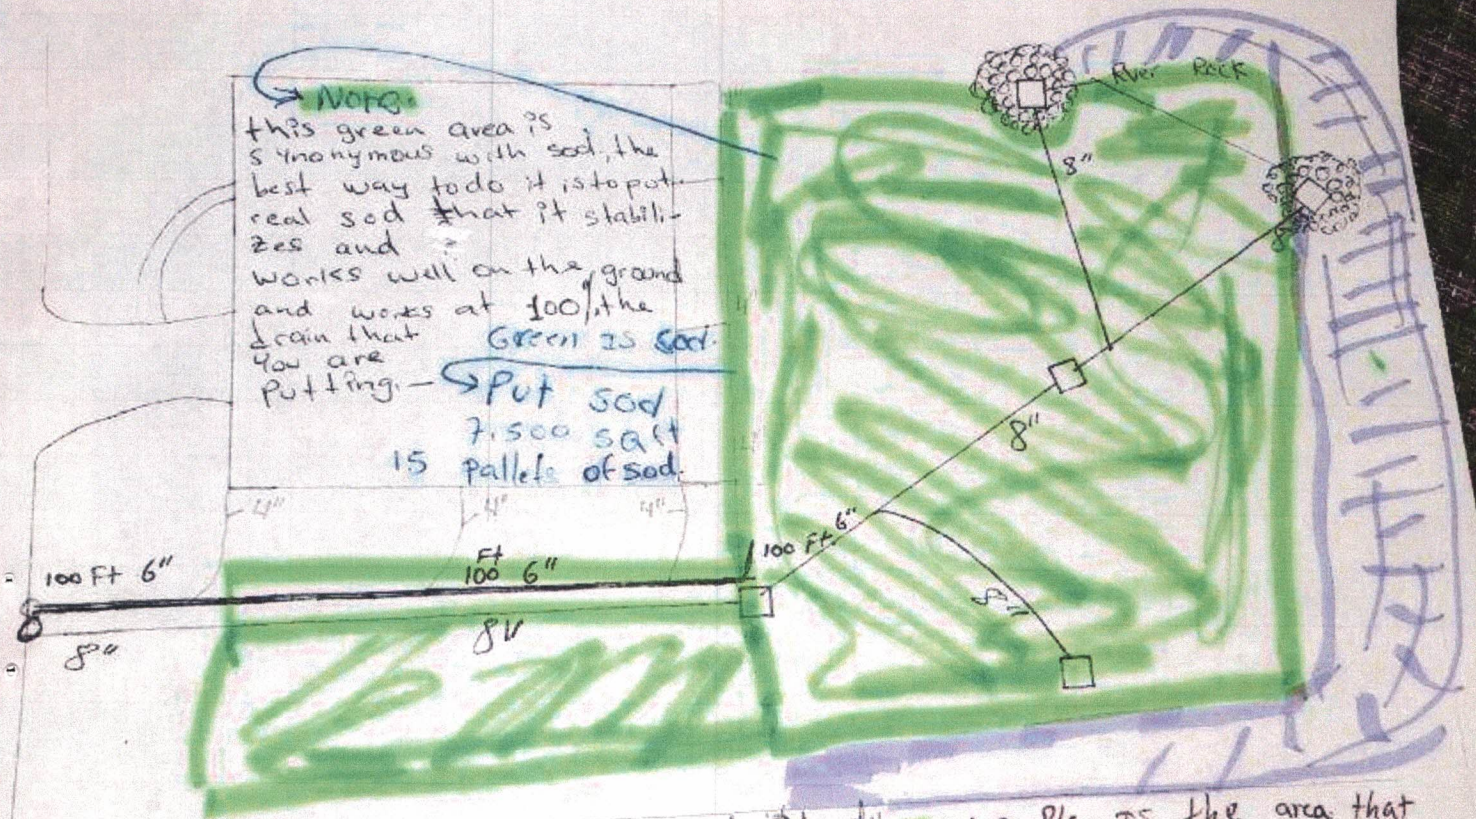 River Rock
Note.
this green area is
synonymous with sod, the
best way to do it is to put
real sod that it stabili-
zes and
works well on the ground
and works at 100%, the
drain that
you are
putting.—
Green is sod.
Put sod
7.500 sqft
15 pallets of sod.
8"
8"
8"
4" 4" 4"
100 Ft 6"
100 Ft 6"
Ft
100 6"
8"
8"
8"
is the area that